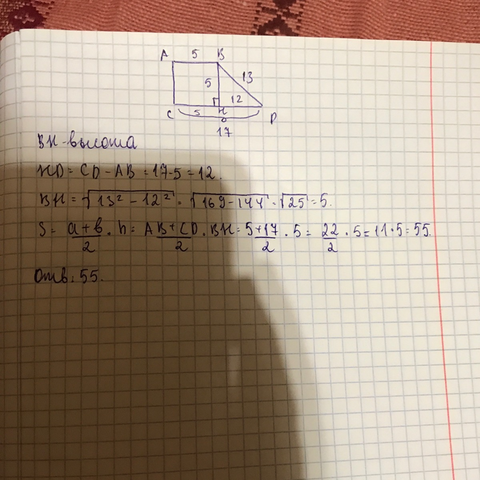 A 5 B
5 13
5 H 12
C D
17
BH-высота
HD = CD - AB = 17-5 = 12.
BH = √13² - 12² = √169-144 = √25 = 5.
S = a+b/2 · h = AB+CD/2 · BH = 5+17/2 · 5 = 22/2 · 5 = 11·5 = 55.
Отв: 55.